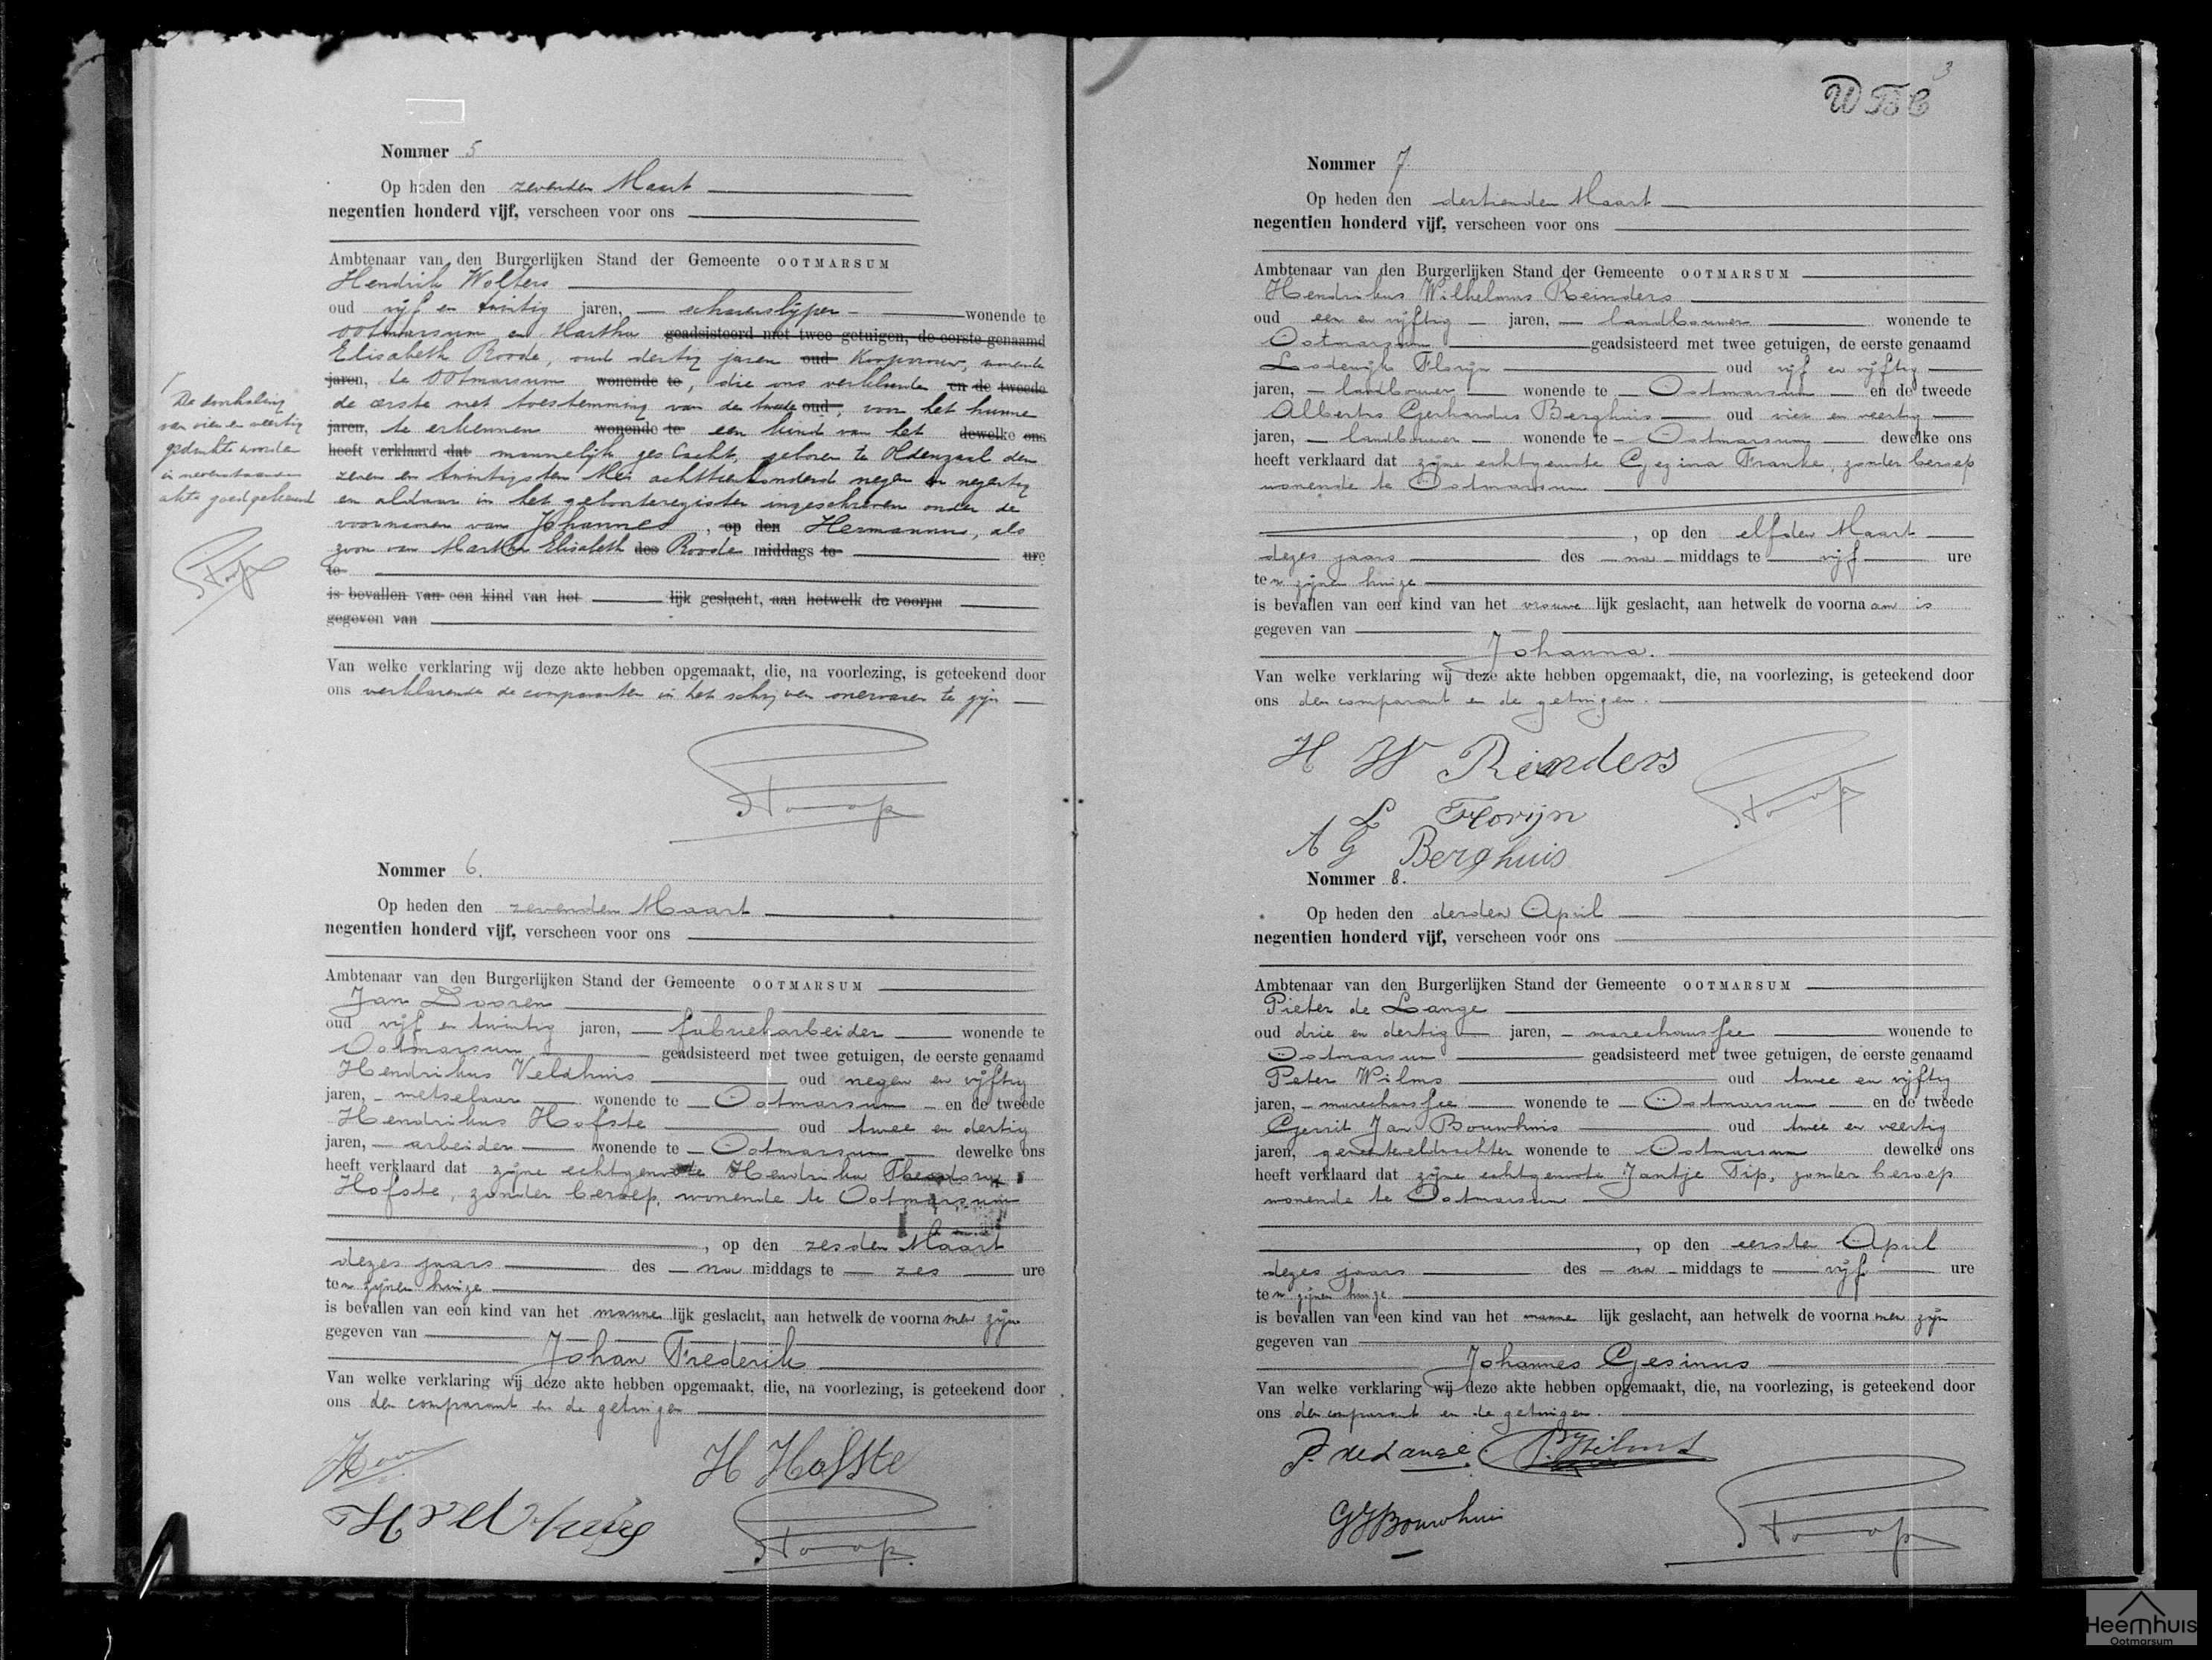 Nommer 5
Op heden den zevenden Maart
negentien honderd vijf, verscheen voor ons
Ambtenaar van den Burgerlijken Stand der Gemeente OOTMARSUM
Hendrik Wolters
oud vijf en twintig jaren, scharenslijper wonende te
Ootmarsum en Martha geadsisteerd met twee getuigen, de eerste genaamd
Elisabeth Roode, oud dertig jaren oud Koopvrouw, wonende
jaren, te Ootmarsum wonende te, die ons verklaarden en de tweede
de eerste met toestemming van de tweede oud, voor het hunne
jaren, te erkennen wonende te een kind van het dewelke ons
heeft verklaard dat mannelijk geslacht, geboren te Oldenzaal den
zeven en twintigsten Mei achttienhonderd negen en negentig
en aldaar in het geboorteregister ingeschreven onder de
voornamen van Johannes, op den Hermannus, als
zoon van Martha Elisabeth des Roode middags te ure
te
is bevallen van een kind van het lijk geslacht, aan hetwelk de voorna
gegeven van
Van welke verklaring wij deze akte hebben opgemaakt, die, na voorlezing, is geteekend door
ons verklarende de comparanten in het schrijven onervaren te zijn
De doorhaling
van vier en veertig
gedrukte woorden
in nevenstaande
akte goedgekeurd
Nommer 6.
Op heden den zevenden Maart
negentien honderd vijf, verscheen voor ons
Ambtenaar van den Burgerlijken Stand der Gemeente OOTMARSUM
Jan Dooren
oud vijf en twintig jaren, fabriekarbeider wonende te
Ootmarsum geadsisteerd met twee getuigen, de eerste genaamd
Hendrikus Veldhuis oud negen en vijftig
jaren, metselaar wonende te Ootmarsum en de tweede
Hendrikus Hofste oud twee en dertig
jaren, arbeider wonende te Ootmarsum dewelke ons
heeft verklaard dat zijne echtgenoote Hendrika Theodora
Hofste, zonder beroep, wonende te Ootmarsum
, op den zesden Maart
dezes jaars des na middags te zes ure
ten zijnen huize
is bevallen van een kind van het manne lijk geslacht, aan hetwelk de voorna men zijn
gegeven van
Johan Frederik
Van welke verklaring wij deze akte hebben opgemaakt, die, na voorlezing, is geteekend door
ons den comparant en de getuigen
H Hofste
3
Nommer 7.
Op heden den dertienden Maart
negentien honderd vijf, verscheen voor ons
Ambtenaar van den Burgerlijken Stand der Gemeente OOTMARSUM
Hendrikus Wilhelmus Reinders
oud een en vijftig jaren, landbouwer wonende te
Ootmarsum geadsisteerd met twee getuigen, de eerste genaamd
Lodewijk Florijn oud vijf en vijftig
jaren, landbouwer wonende te Ootmarsum en de tweede
Albertus Gerhardus Berghuis oud vier en veertig
jaren, landbouwer wonende te Ootmarsum dewelke ons
heeft verklaard dat zijne echtgenoote Gezina Franke, zonder beroep
wonende te Ootmarsum
, op den elfden Maart
dezes jaars des na middags te vijf ure
ten zijnen huize
is bevallen van een kind van het vrouwe lijk geslacht, aan hetwelk de voorna am is
gegeven van
Johanna.
Van welke verklaring wij deze akte hebben opgemaakt, die, na voorlezing, is geteekend door
ons den comparant en de getuigen.
H W Reinders
L Florijn
A G Berghuis
Nommer 8.
Op heden den derden April
negentien honderd vijf, verscheen voor ons
Ambtenaar van den Burgerlijken Stand der Gemeente OOTMARSUM
Pieter de Lange
oud drie en dertig jaren, marechaussee wonende te
Ootmarsum geadsisteerd met twee getuigen, de eerste genaamd
Peter Wilms oud twee en vijftig
jaren, marechaussee wonende te Ootmarsum en de tweede
Gerrit Jan Bouwhuis oud twee en veertig
jaren, wonende te Ootmarsum dewelke ons
heeft verklaard dat zijne echtgenoote Jantje Tip, zonder beroep
wonende te Ootmarsum
, op den eersten April
dezes jaars des na middags te vijf ure
ten zijnen huize
is bevallen van een kind van het manne lijk geslacht, aan hetwelk de voorna men zijn
gegeven van
Johannes Gesinus
Van welke verklaring wij deze akte hebben opgemaakt, die, na voorlezing, is geteekend door
ons den comparant en de getuigen.
P. de Lange. P. Wilms
GJ Bouwhuis
Heemhuis
Ootmarsum